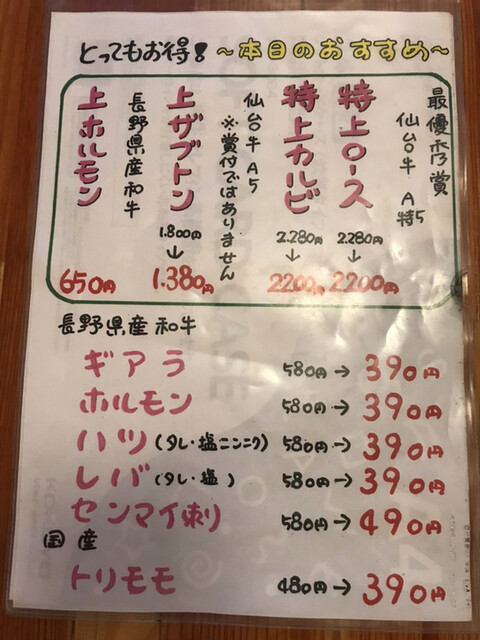 とってもお得! ~本日のおすすめ~
最優秀賞
仙台牛 A5
特上ロース
2.280円→2200円
特上カルビ
2.280円→2200円
仙台牛 A5
※賞付ではありません
上ザブトン
1.800円→1.380円
長野県産和牛
上ホルモン
650円
長野県産和牛
ギアラ 580円→390円
ホルモン 580円→390円
ハツ(タレ・塩ニンニク) 580円→390円
レバ(タレ・塩) 580円→390円
センマイ刺り 580円→490円
国産
トリモモ 480円→390円